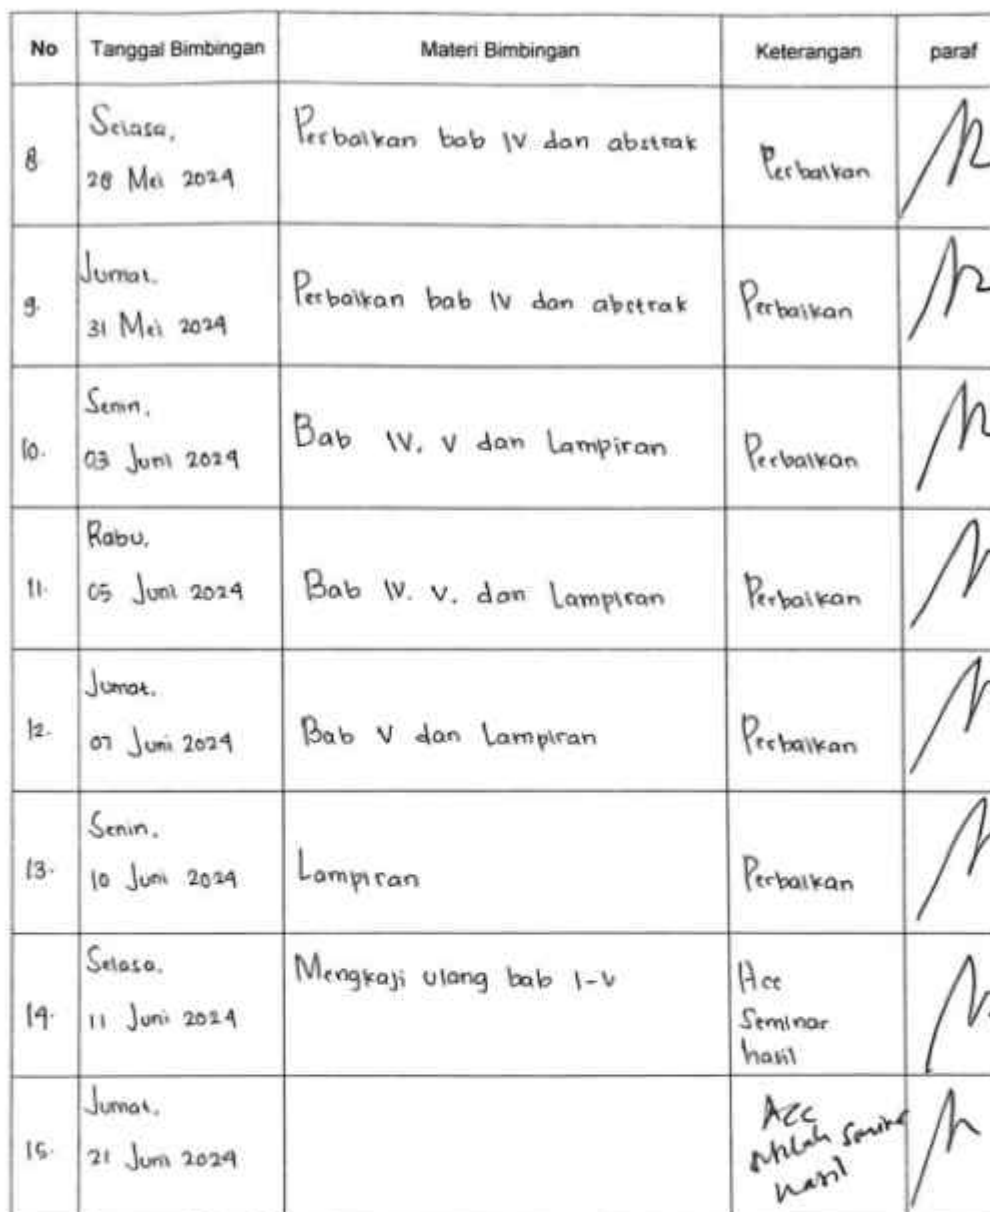 No Tanggal Bimbingan Materi Bimbingan Keterangan paraf
8. Selasa, 28 Mei 2024 Perbaikan bab IV dan abstrak Perbaikan
9. Jumat, 31 Mei 2024 Perbaikan bab IV dan abstrak Perbaikan
10. Senin, 03 Juni 2024 Bab IV, V dan Lampiran Perbaikan
11. Rabu, 05 Juni 2024 Bab IV, V, dan Lampiran Perbaikan
12. Jumat, 07 Juni 2024 Bab V dan Lampiran Perbaikan
13. Senin, 10 Juni 2024 Lampiran Perbaikan
14. Selasa, 11 Juni 2024 Mengkaji ulang bab I-V Acc Seminar hasil
15. Jumat, 21 Juni 2024 Acc setelah seminar hasil